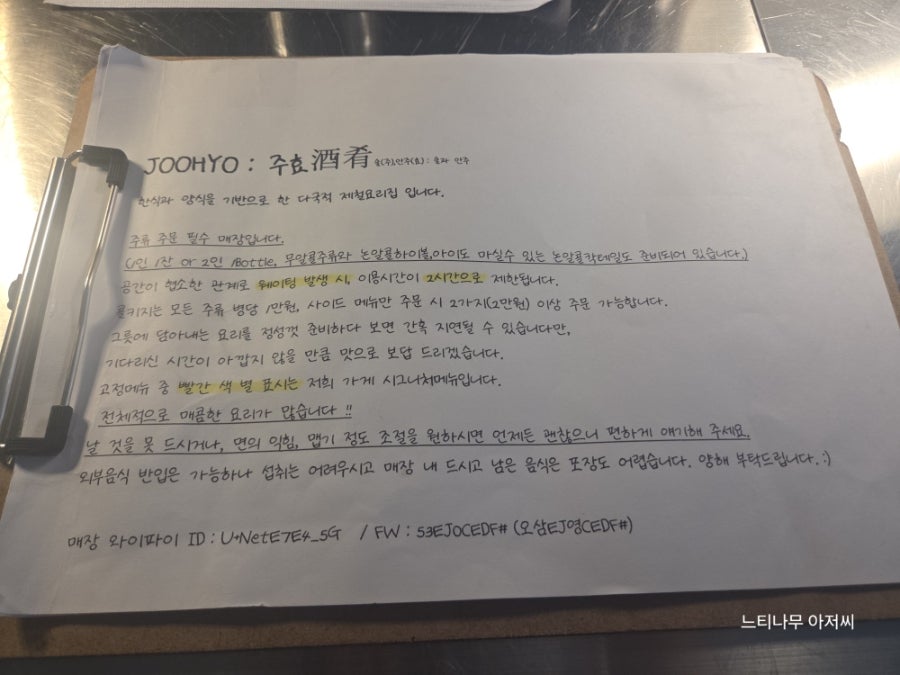 JOOHYO : 주효酒肴 술(주),안주(효) : 술과 안주
한식과 양식을 기반으로 한 다국적 제철요리집 입니다.
주류 주문 필수 매장입니다.
(1인 1잔 or 2인 1Bottle, 무알콜주류와 논알콜하이볼,아이도 마실수 있는 논알콜칵테일도 준비되어 있습니다.)
공간이 협소한 관계로 웨이팅 발생 시, 이용시간이 2시간으로 제한됩니다.
콜키지는 모든 주류 병당 1만원, 사이드 메뉴만 주문 시 2가지(2만원) 이상 주문 가능합니다.
그릇에 담아내는 요리를 정성껏 준비하다 보면 간혹 지연될 수 있습니다만,
기다리신 시간이 아깝지 않을 만큼 맛으로 보답 드리겠습니다.
고정메뉴 중 빨간 색 별 표시는 저희 가게 시그니처메뉴입니다.
전체적으로 매콤한 요리가 많습니다 !!
날 것을 못 드시거나, 면의 익힘, 맵기 정도 조절을 원하시면 언제든 괜찮으니 편하게 얘기해 주세요.
외부음식 반입은 가능하나 섭취는 어려우시고 매장 내 드시고 남은 음식은 포장도 어렵습니다. 양해 부탁드립니다. :)
매장 와이파이 ID : U+NetE7E4_5G / PW : 53EJ0CEDF# (오삼EJ영CEDF#)
느티나무 아저씨